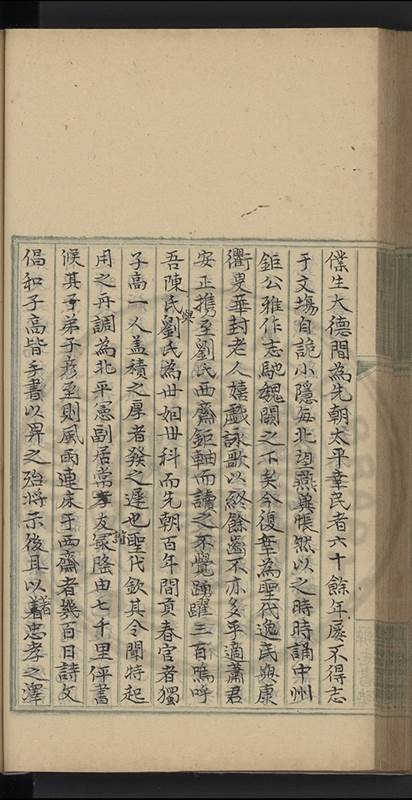 僕生大德間為先朝太平幸民者六十餘年屢不得志
于文場自詭小隱每北望燕冀悵然以之時時誦中州
鉅公雅作志馳魏闕之下矣今復幸為聖代逸民與康
衢叟華封老人嬉戲詠歌以終餘齒不亦多乎適蕭君
安正携至劉氏西齋鉅軸而讀之不覺踊躍三百嗚呼
吾陳氏與劉氏為世姻世科而先朝百年間貢春官者獨
子高一人盖積之厚者發之遲也聖代欽其令聞特起
用之再調為北平憲副居常孝友氣隆由七千里伻書
候其子弟子彥至則風雨連床于西齋者幾百日詩文
倡和子高皆手書以畀之殆將示後且以著忠孝之澤